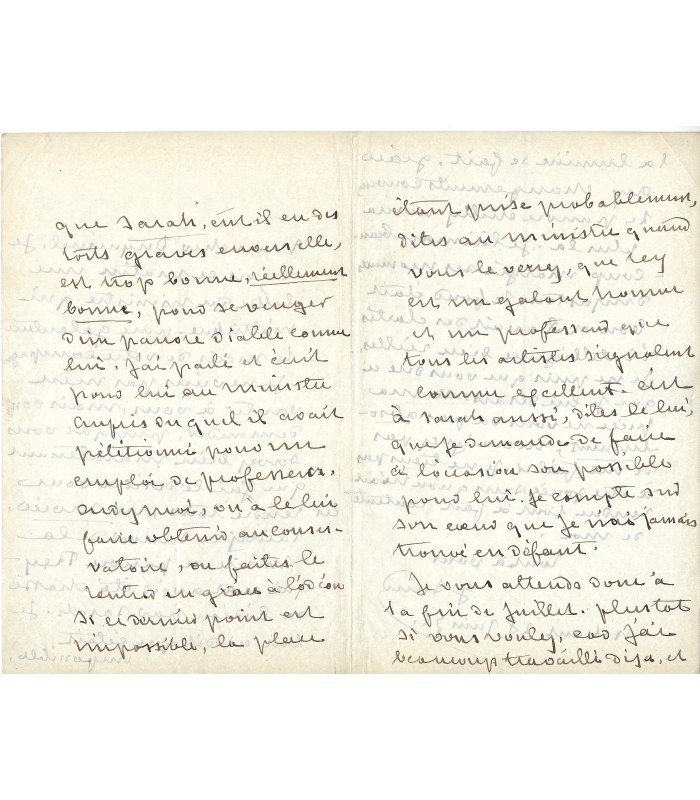 que Sarah, eût il eu des
torts graves envers elle,
est trop bonne, réellement
bonne, pour se venger
d'un pauvre diable comme
lui. j'ai parlé et écrit
pour lui au ministre
auprès du quel il avait
pétitionné pour un
emploi de professeur,
aidez moi, ou à le lui
faire obtenir au conser-
vatoire, ou faites le
rentrer en grâce à l'odéon
Si ce dernier point est
impossible, la place
étant prise probablement,
dites au ministre quand
vous le verrez, que Rey
est un galant homme
et un professeur que
tous les artistes signalent
comme excellent. c'est
à Sarah aussi, dites le lui,
que je demande de faire
à l'occasion son possible
pour lui. je compte sur
son cœur que je n'ai jamais
trouvé en défaut.
Je vous attends donc à
la fin de Juillet. plustot
si vous voulez, car j'ai
beaucoup travaillé déjà, et